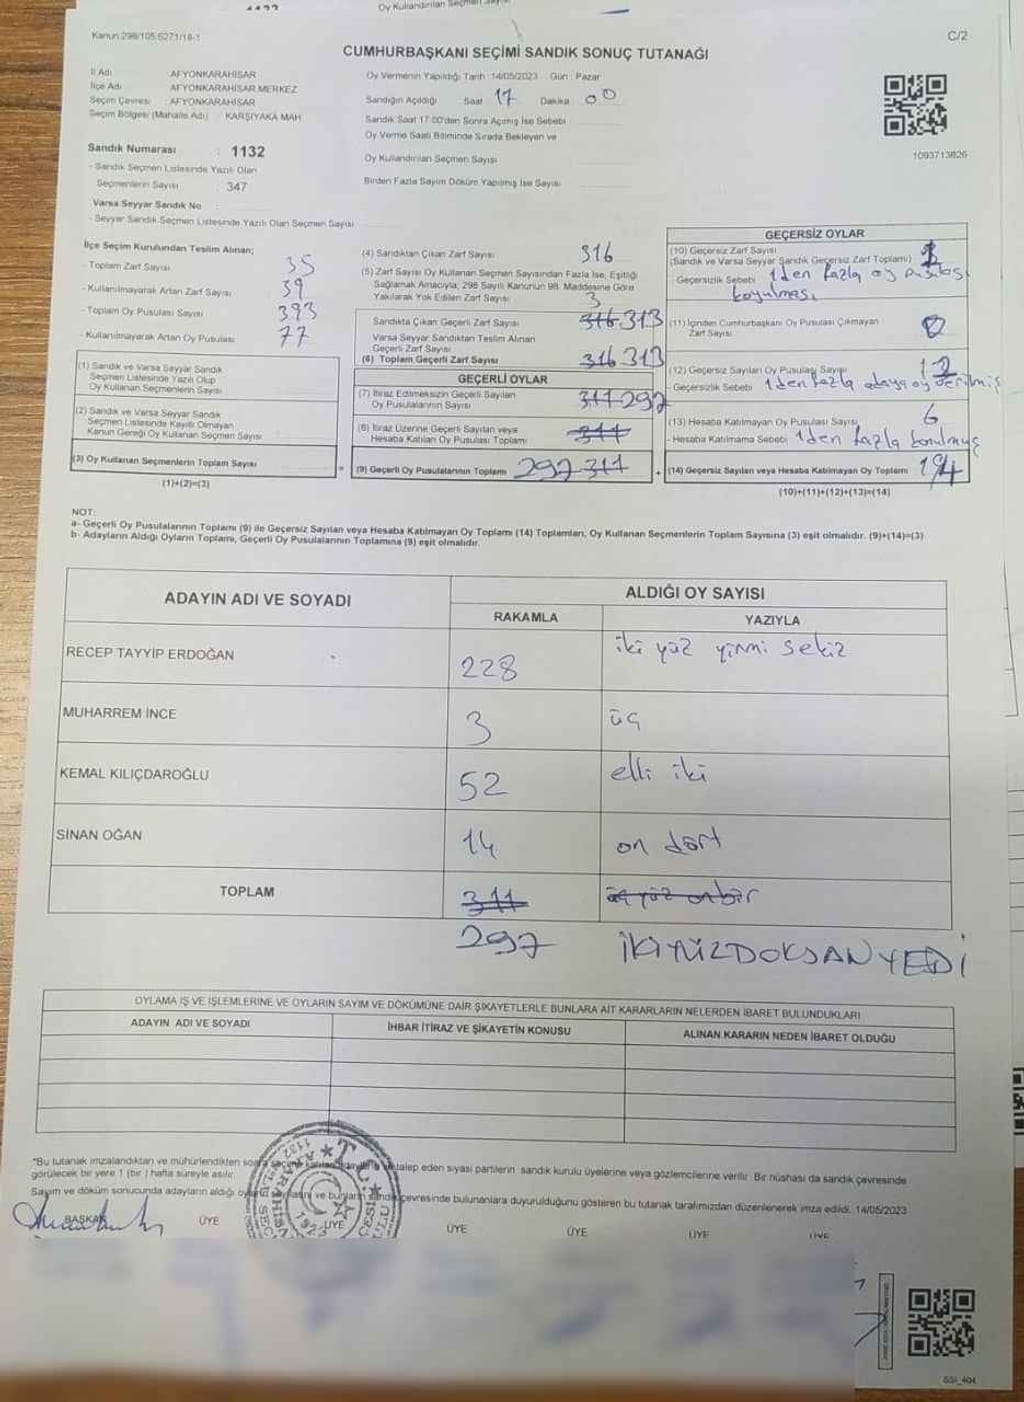 Kanun 298/105 6271/18-1
C/2
CUMHURBAŞKANI SEÇİMİ SANDIK SONUÇ TUTANAĞI
İl Adı AFYONKARAHİSAR
İlçe Adı AFYONKARAHİSAR MERKEZ
Seçim Çevresi : AFYONKARAHİSAR
Seçim Bölgesi (Mahalle Adı) KARŞIYAKA MAH
Sandık Numarası : 1132
- Sandık Seçmen Listesinde Yazılı Olan
Seçmenlerin Sayısı : 347
Varsa Seyyar Sandık No
- Seyyar Sandık Seçmen Listesinde Yazılı Olan Seçmen Sayısı
Oy Vermenin Yapıldığı Tarih : 14/05/2023 Gün : Pazar
Sandığın Açıldığı Saat 17 Dakika 00
Sandık Saat 17:00'den Sonra Açılmış İse Sebebi
Oy Verme Saati Bitiminde Sırada Bekleyen ve
Oy Kullandırılan Seçmen Sayısı
Birden Fazla Sayım Döküm Yapılmış İse Sayısı
1093713826
İlçe Seçim Kurulundan Teslim Alınan;
- Toplam Zarf Sayısı 35
- Kullanılmayarak Artan Zarf Sayısı 39
- Toplam Oy Pusulası Sayısı 393
- Kullanılmayarak Artan Oy Pusulası 77
(1) Sandık ve Varsa Seyyar Sandık
Seçmen Listesinde Yazılı Olup
Oy Kullanan Seçmenlerin Sayısı
(2) Sandık ve Varsa Seyyar Sandık
Seçmen Listesinde Kayıtlı Olmayan
Kanun Gereği Oy Kullanan Seçmen Sayısı
(3) Oy Kullanan Seçmenlerin Toplam Sayısı
(1)+(2)=(3)
(4) Sandıktan Çıkan Zarf Sayısı 316
(5) Zarf Sayısı Oy Kullanan Seçmen Sayısından Fazla İse, Eşitliği
Sağlamak Amacıyla; 298 Sayılı Kanunun 98. Maddesine Göre
Yakılarak Yok Edilen Zarf Sayısı 3
Sandıkta Çıkan Geçerli Zarf Sayısı 316 313
Varsa Seyyar Sandıktan Teslim Alınan
Geçerli Zarf Sayısı
(6) Toplam Geçerli Zarf Sayısı 316 313
GEÇERLİ OYLAR
(7) İtiraz Edilmeksizin Geçerli Sayılan
Oy Pusulalarının Sayısı 311 297
(8) İtiraz Üzerine Geçerli Sayılan veya
Hesaba Katılan Oy Pusulası Toplamı 311
(9) Geçerli Oy Pusulalarının Toplamı 297 311
GEÇERSİZ OYLAR
(10) Geçersiz Zarf Sayısı
(Sandık ve Varsa Seyyar Sandık Geçersiz Zarf Toplamı) 1
Geçersizlik Sebebi 1den fazla oy pusulası
koyulması
(11) İçinden Cumhurbaşkanı Oy Pusulası Çıkmayan
Zarf Sayısı 0
(12) Geçersiz Sayılan Oy Pusulası Sayısı
- Geçersizlik Sebebi 1den fazla adaya oy verilmiş
(13) Hesaba Katılmayan Oy Pusulası Sayısı 6
- Hesaba Katılmama Sebebi 1den fazla
(14) Geçersiz Sayılan veya Hesaba Katılmayan Oy Toplamı
(10)+(11)+(12)+(13)=(14)
NOT:
a- Geçerli Oy Pusulalarının Toplamı (9) ile Geçersiz Sayılan veya Hesaba Katılmayan Oy Toplamı (14) Toplamları, Oy Kullanan Seçmenlerin Toplam Sayısına (3) eşit olmalıdır. (9)+(14)=(3)
b- Adayların Aldığı Oyların Toplamı, Geçerli Oy Pusulalarının Toplamına (9) eşit olmalıdır.
ADAYIN ADI VE SOYADI ALDIĞI OY SAYISI
RAKAMLA YAZIYLA
RECEP TAYYİP ERDOĞAN 228 iki yüz yirmi sekiz
MUHARREM İNCE 3 üç
KEMAL KILIÇDAROĞLU 52 elli iki
SİNAN OĞAN 14 on dört
TOPLAM 311 üç yüz onbir
297 İKİYÜZDOKSANYEDİ
OYLAMA İŞ VE İŞLEMLERİNE VE OYLARIN SAYIM VE DÖKÜMÜNE DAİR ŞİKAYETLERLE BUNLARA AİT KARARLARIN NELERDEN İBARET BULUNDUKLARI
ADAYIN ADI VE SOYADI İHBAR İTİRAZ VE ŞİKAYETİN KONUSU ALINAN KARARIN NEDEN İBARET OLDUĞU
*Bu tutanak imzalandıktan ve mühürlendikten talep eden siyasi partilerin sandık kurulu üyelerine veya gözlemcilerine verilir. Bir nüshası da sandık çevresinde
görülecek bir yere 1 (bir) hafta süreyle asılır.
Sayım ve döküm sonucunda adayların aldığı ve bunların sandık çevresinde bulunanlara duyurulduğunu gösteren bu tutanak tarafımızdan düzenlenerek imza edildi. 14/05/2023
BAŞKAN ÜYE ÜYE ÜYE ÜYE ÜYE ÜYE
SSI_404